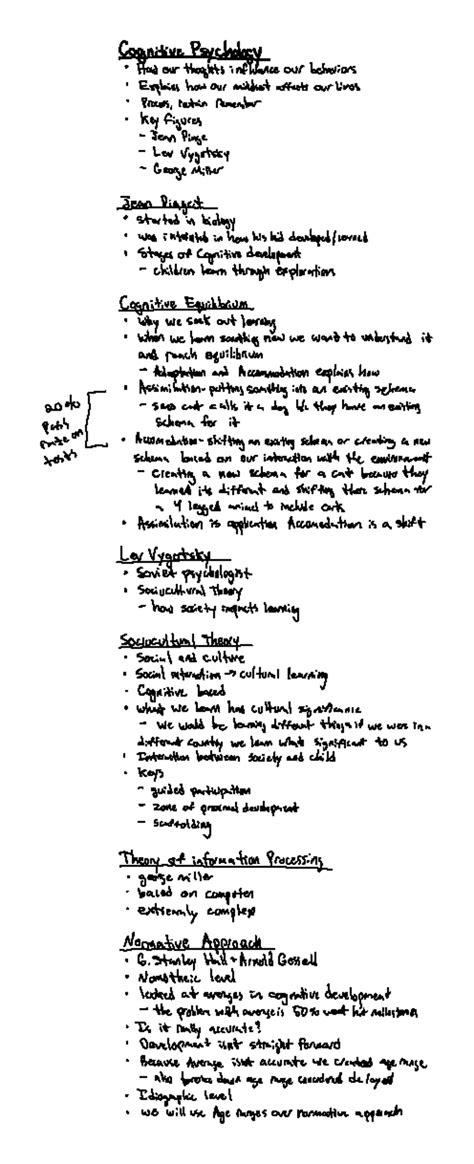 Cognitive Psychology
• How our thoughts influence our behaviors
• Explains how our mindset affects our lives
• Process, retain remember
• Key figures
- Jean Piage
- Lev Vygotsky
- George Miller
Jean Piaget
• started in biology
• was in how his kid developed/learned
• Stages of Cognitive development
- children learn through explorations
Cognitive Equilibrium
• Why we seek out learning
• When we learn something new we want to understand it
and reach equilibrium
- Adaptation and Accommodation explains how
• Assimilation- putting something into an existing schema
- sees cat calls it a dog b/c they have an exiting
schema for it
• Accomodation- shifting an existing schema or creating a new
schema based on our interaction with the environment
- Creating a new schema for a cat because they
learned its different and shifting there schema for
a 4 legged animal to include cats
• Assimilation is application Accomodation is a shift
both
on
tests
Lev Vygotsky
• Soviet psychologist
• Sociocultural Theory
- how society impacts learning
Sociocultural Theory
• Social and culture
• Social interaction → cultural learning
• Cognitive based
• what we learn has cultural significance
- We would be learning different things if we were in a
different country we learn whats significant to us
• Interaction between society and child
• Keys
- guided participation
- zone of proximal development
- scaffolding
Theory of information Processing
• george miller
• based on computer
• extremely complex
Normative Approach
• G. Stanley Hall + Arnold Gessell
• Nomotheic level
• looked at averges in cognitive development
- the problem with average is 50% wont hit milestones
• Is it really accurate?
• Development isnt straight forward
• Because Average isnt accurate we created age range
- also broke down age range considered delayed
• Idiographic level
• we will use Age ranges over normative approach